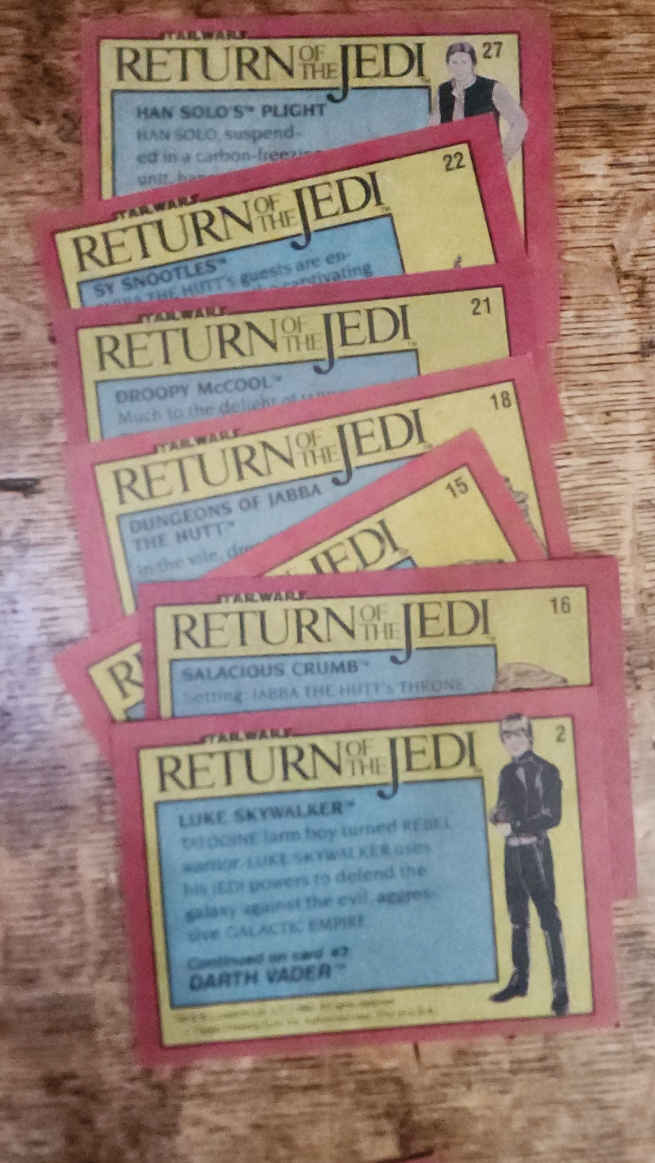 STAR WARS
RETURN OF THE JEDI
27
HAN SOLO'S™ PLIGHT
HAN SOLO, suspend-
ed in a carbon-freezing
unit, has
STAR WARS
RETURN OF THE JEDI™
22
SY SNOOTLES™
JABBA THE HUTT's guests are en-
captivating
STAR WARS
RETURN OF THE JEDI™
21
DROOPY McCOOL™
Much to the delight of
STAR WARS
RETURN OF THE JEDI
18
DUNGEONS OF JABBA
THE HUTT™
In the vile,
JEDI
15
R
STAR WARS
RETURN OF THE JEDI
16
SALACIOUS CRUMB™
Setting: JABBA THE HUTT's THRONE
STAR WARS
RETURN OF THE JEDI™
2
LUKE SKYWALKER™
TATOOINE farm boy turned REBEL
warrior, LUKE SKYWALKER uses
his JEDI powers to defend the
galaxy against the evil, aggres-
sive GALACTIC EMPIRE
Continued on card #3
DARTH VADER™